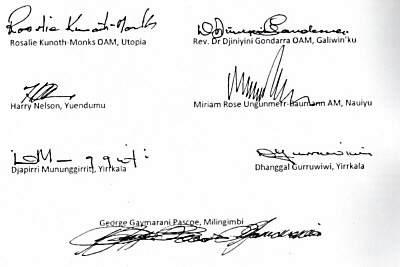 Rosalie Kunoth-Monks
Rosalie Kunoth-Monks OAM, Utopia
Rev. Dr Djiniyini Gondarra OAM, Galiwin'ku
Harry Nelson, Yuendumu
Miriam Rose Ungunmerr-Baumann AM, Nauiyu
Djapirri Mununggirritj, Yirrkala
Dhanggal Gurruwiwi, Yirrkala
George Gaymarani Pascoe, Milingimbi